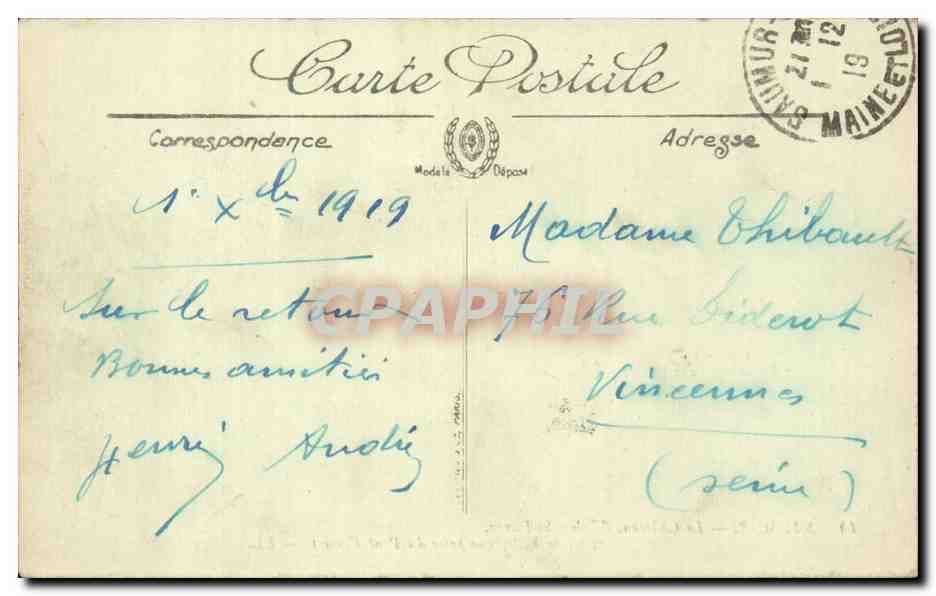 Carte Postale
SAUMUR
MAINE ET LOIRE
1 12
19
Correspondance
Adresse
Modèle Déposé
1er Xbre 1919
Sur le retour
Bonnes amitiés
Henri André
Madame Thibault
76 Rue Diderot
Vincennes
(Seine)
CPAPHIL
PARIS.